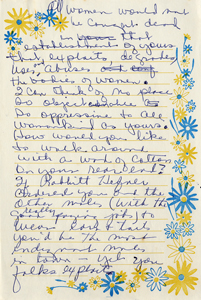 women would not
be caught dead
in that
establishment of yours
that exploits, degrades
uses, abuses
bodies of women.
I can think of no place
so
so oppressive to all
womankind as yours.
How would you like
to walk around
with a wad of cotton
on your rear end?
If Rabbitt Hefner
offered you and the
other males (with the
job) to
wear ears & tail
you'd be the most
in town — yet you
exploit